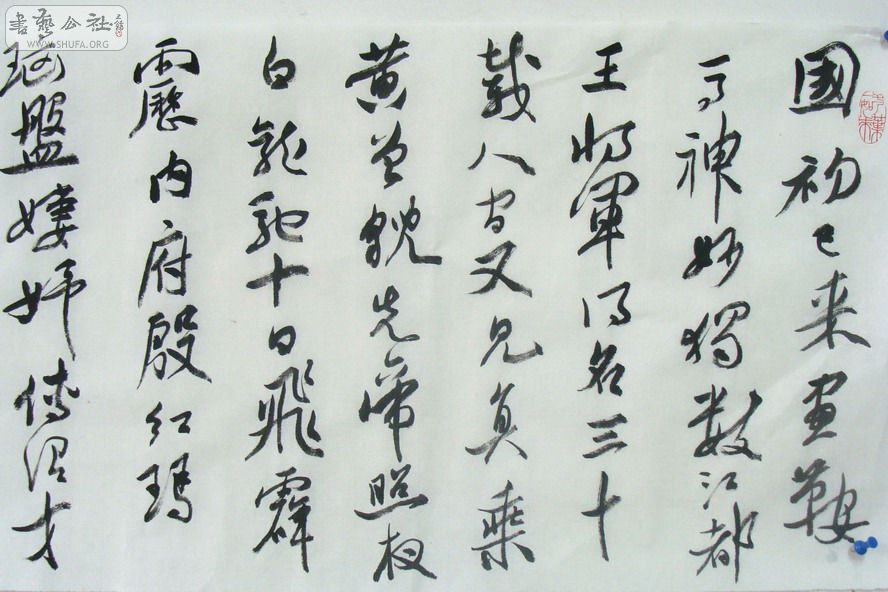 書藝公社
WWW.SHUFA.ORG
國初已来畫鞍
馬神妙獨數江都
王將軍得名三十
載人間又見真乘
黄曾貌先帝照夜
白龍池十日飛霹
靂内府殷紅瑪
瑙盤婕妤傳詔才